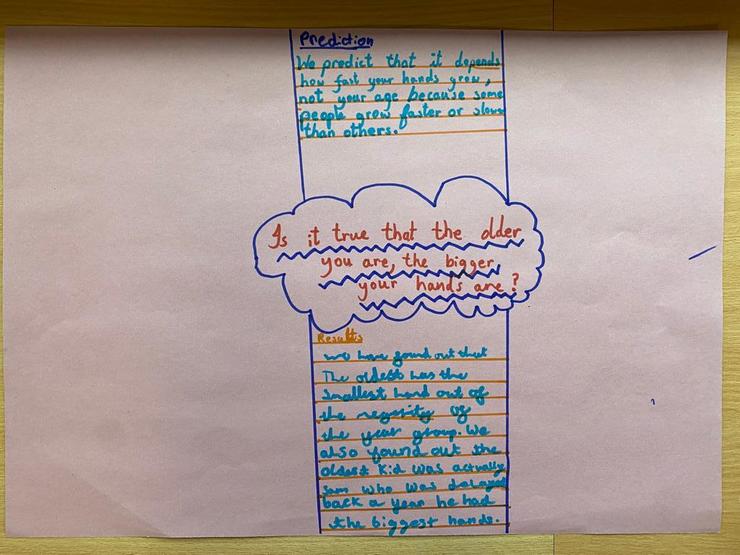 Prediction
We predict that it depends
how fast your hands grow,
not your age because some
people grow faster or slower
than others.
Is it true that the older
you are, the bigger
your hands are?
Results
We have found out that
The oldest has the
smallest hand out of
the megority of
the year group. We
also found out the
oldest Kid was actually
Sam who was delayed
back a year he had
the biggest hands.